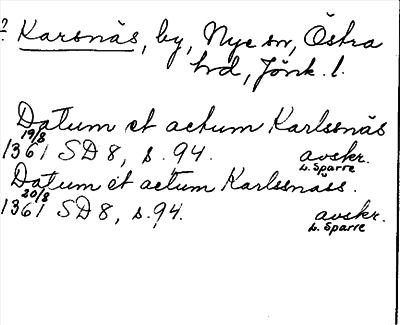 ? Karsnäs, by, Nye sn, Östra
hd, Jönk. l.
Datum et actum Karlssnäs
19/8
1361 SD 8, s. 94. avskr.
L. Sparre
Datum et actum Karlssnass.
20/8
1361 SD 8, s. 94. avskr.
L. Sparre